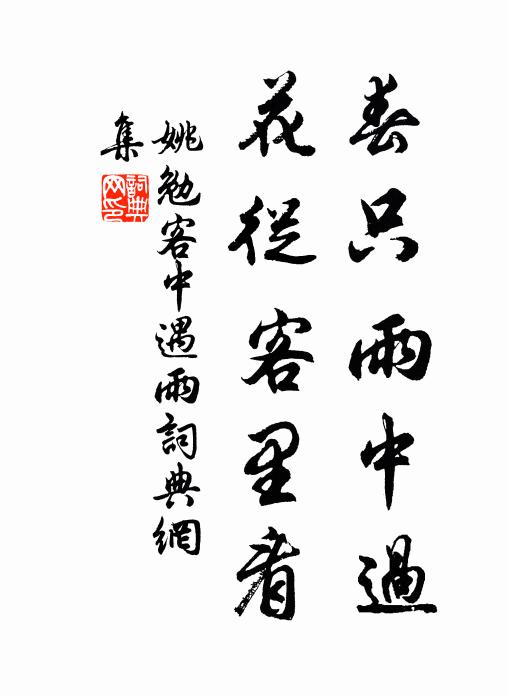 春只雨中過
花從客里看
姚勉客中遇雨詞典網
集
詞典網印